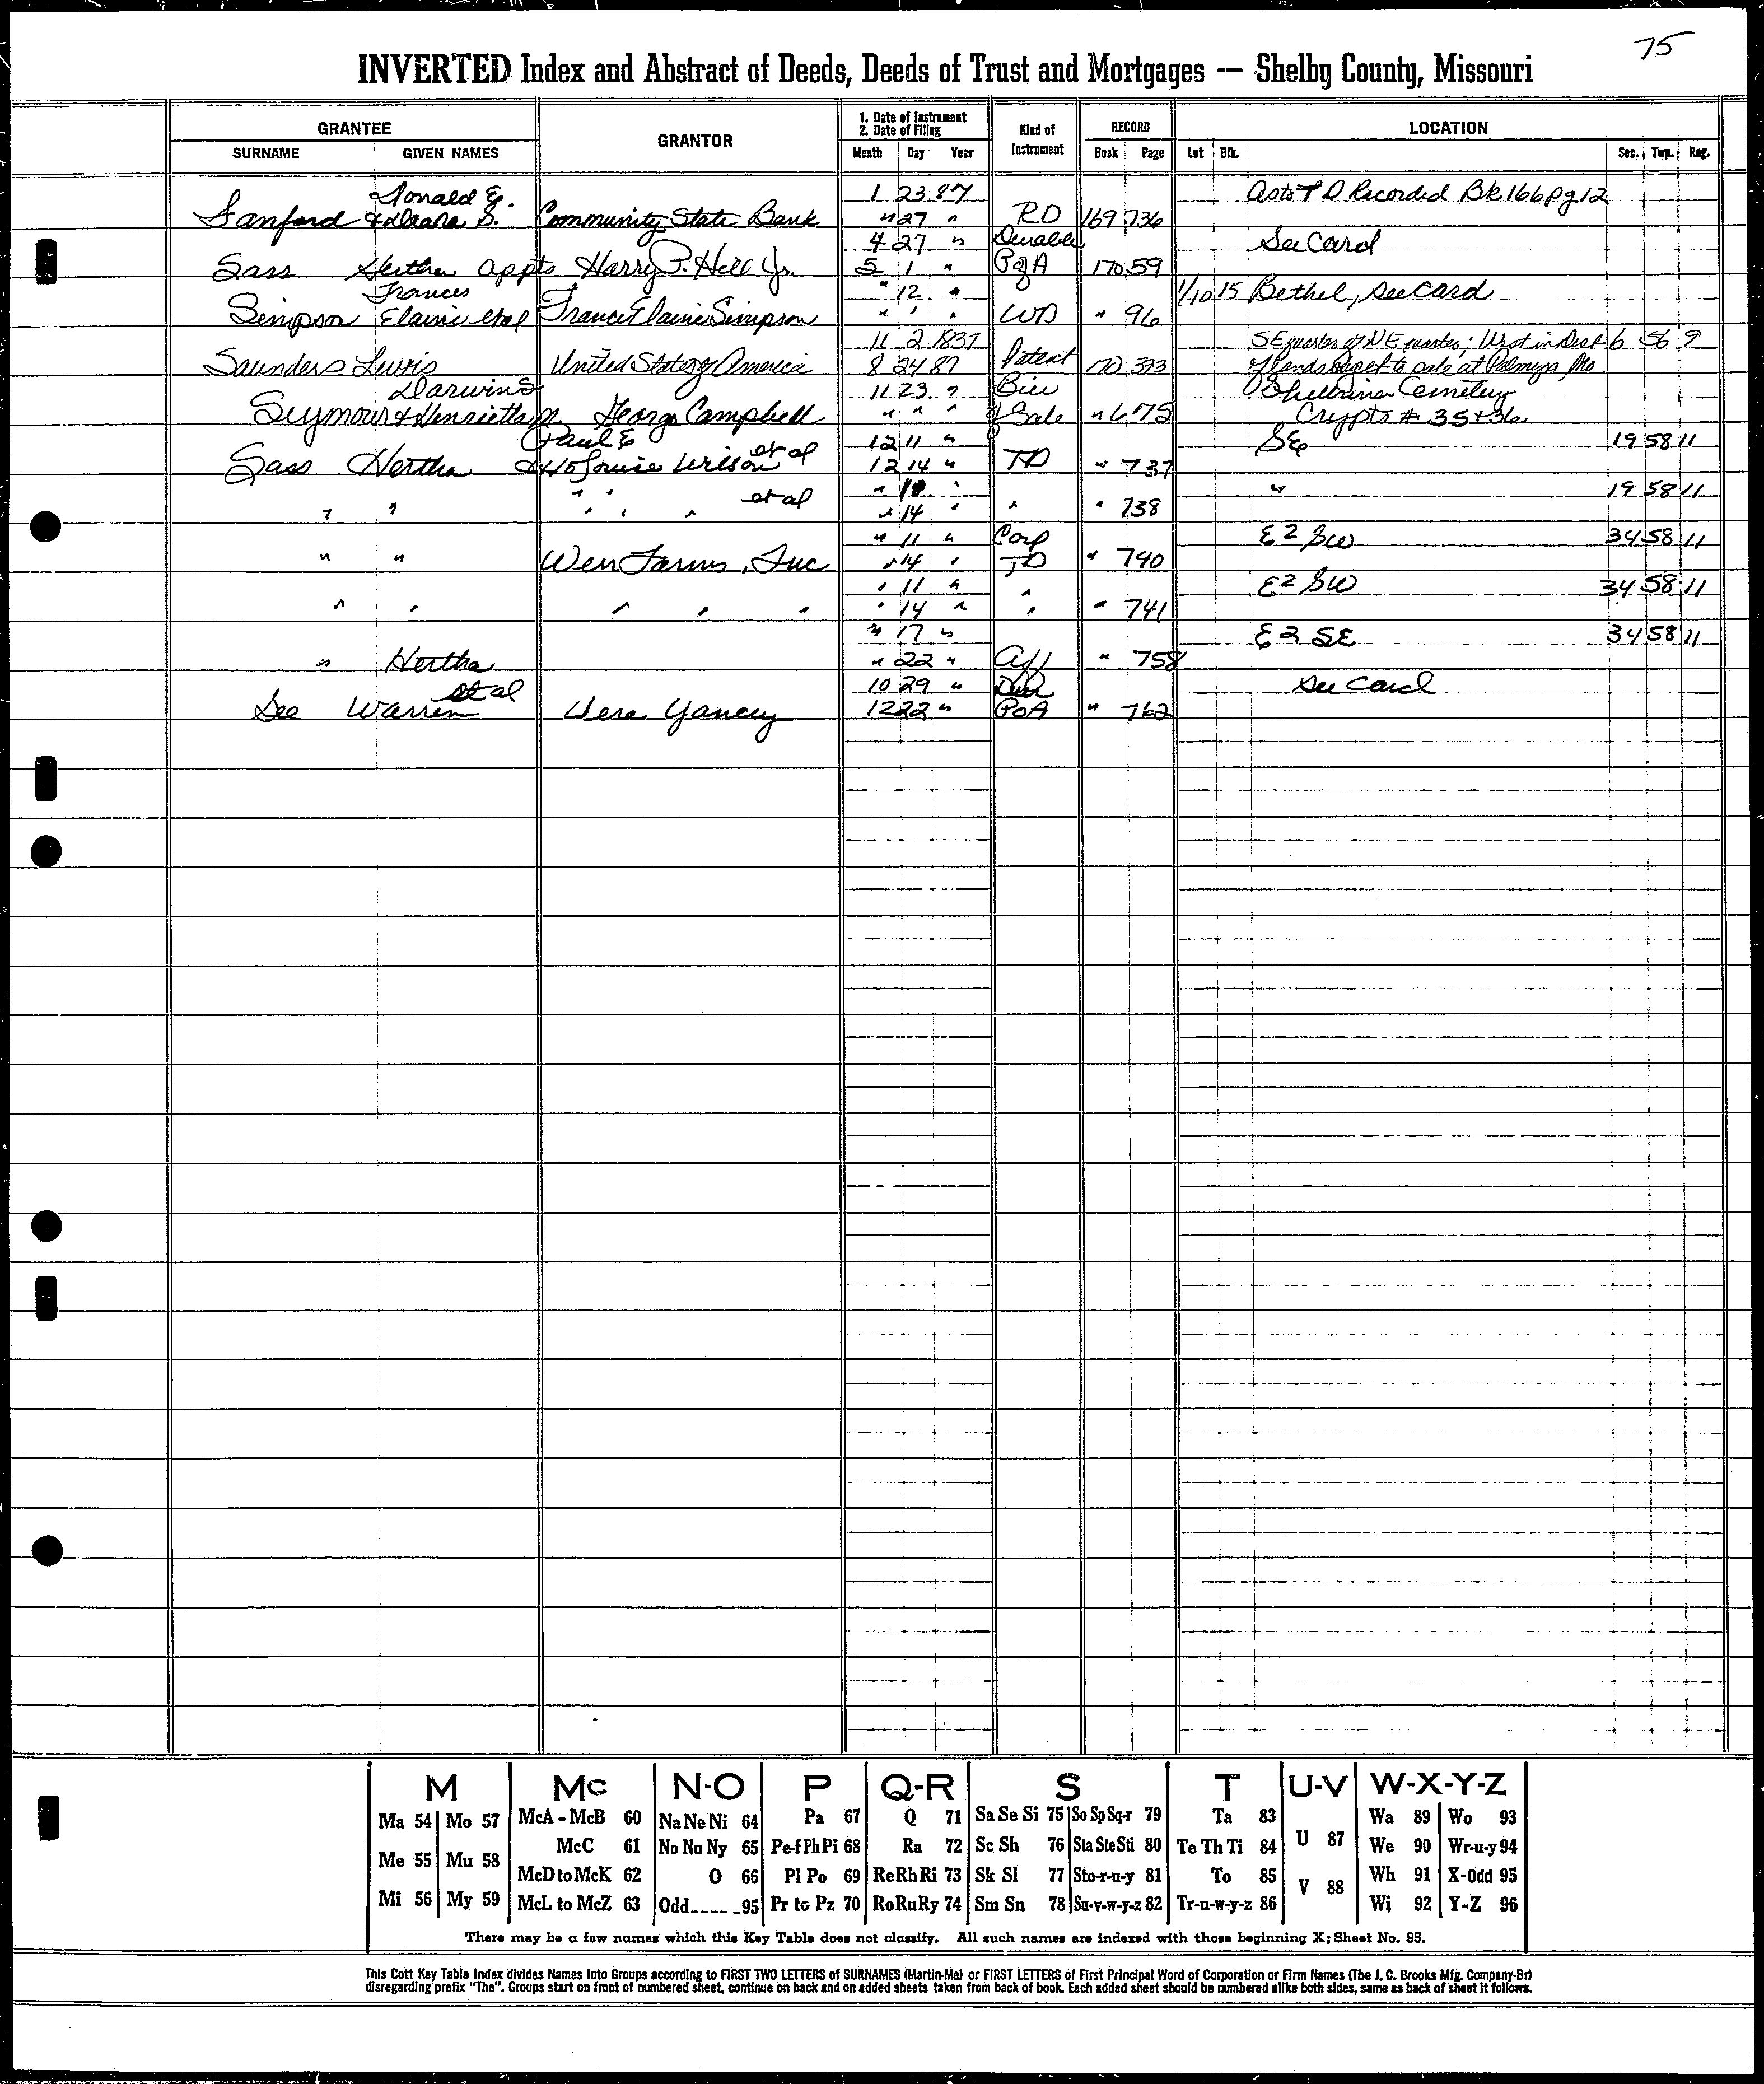 75
INVERTED Index and Abstract of Deeds, Deeds of Trust and Mortgages — Shelby County, Missouri
GRANTEE GRANTOR 1. Date of Instrument 2. Date of Filing Kind of Instrument RECORD LOCATION
SURNAME GIVEN NAMES Month Day Year Book Page Lot Blk. Sec. Twp. Rng.
Donald E. 1 23 87 as to TD Recorded Bk 166 pg 12
Sanford & Deana S. Community State Bank " 27 " RD 169 736
4 27 " Durable See Card
Sass Hertha appts Harry P. Hell Jr. 5 1 " PofA 170 59
Frances " 12 " 1/10 15 Bethel, See Card
Simpson Elaine etal Frances Elaine Simpson " " " WD " 96
11 2 1837 SE quarter of NE quarter; West in Dist 6 56 9
Saunders Lewis United States of America 8 24 87 Patent 170 393 of lands subject to sale at Palmyra Mo
Darwin S 11 23 " Bill Shelbina Cemetery
Seymour & Henrietta M. George Campbell " " " of Sale " 675 Crypts # 35 + 36
Paul E 12 11 " SE 19 58 11
Sass Hertha Louise Wilson et al 12 14 " TD " 737
" " et al " 11 " " 19 58 11
" " " " " " 14 " " " 738
" 11 " Corp E2 SW 34 58 11
" " Wen Farms, Inc " 14 " TD " 740
" 11 " " E2 SW 34 58 11
" " " " " " 14 " " " 741
" 17 " E2 SE 34 58 11
" Hertha " 22 " Aff " 758
et al 10 29 " Dur See Card
See Warren Vera Yancey 12 22 " PoA " 762
M Mc N-O P Q-R S T U-V W-X-Y-Z
Ma 54 Mo 57 McA - McB 60 Na Ne Ni 64 Pa 67 Q 71 Sa Se Si 75 So Sp Sq-r 79 Ta 83 U 87 Wa 89 Wo 93
Me 55 Mu 58 McC 61 No Nu Ny 65 Pe-f Ph Pi 68 Ra 72 Sc Sh 76 Sta Ste Sti 80 Te Th Ti 84 We 90 Wr-u-y 94
McD to McK 62 O 66 Pl Po 69 Re Rh Ri 73 Sk Sl 77 Sto-r-u-y 81 To 85 V 88 Wh 91 X-Odd 95
Mi 56 My 59 McL to McZ 63 Odd 95 Pr to Pz 70 Ro Ru Ry 74 Sm Sn 78 Su-v-w-y-z 82 Tr-u-w-y-z 86 Wi 92 Y-Z 96
There may be a few names which this Key Table does not classify. All such names are indexed with those beginning X; Sheet No. 95.
This Cott Key Table Index divides Names into Groups according to FIRST TWO LETTERS of SURNAMES (Martin-Ma) or FIRST LETTERS of First Principal Word of Corporation or Firm Names (The J. C. Brooks Mfg. Company-Br)
disregarding prefix "The". Groups start on front of numbered sheet, continue on back and on added sheets taken from back of book. Each added sheet should be numbered alike both sides, same as back of sheet it follows.